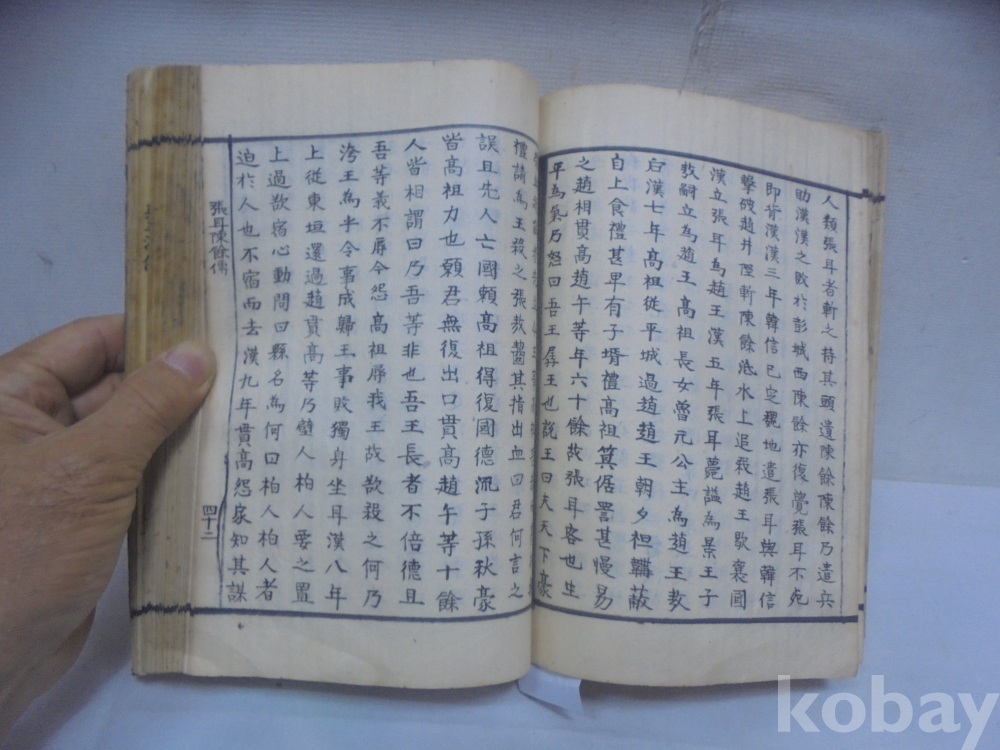 人類張耳者斬之持其頭遺陳餘陳餘乃遣兵
助漢漢之敗於彭城西陳餘亦復覺張耳不死
即背漢漢三年韓信已定魏地遣張耳與韓信
擊破趙井陘斬陳餘泜水上追殺趙王歇襄國
漢立張耳為趙王漢五年張耳薨謚為景王子
敖嗣立為趙王高祖長女魯元公主為趙王敖
后漢七年高祖從平城過趙趙王朝夕袒韝蔽
自上食禮甚卑有子壻禮高祖箕倨詈甚慢易
之趙相貫高趙午等年六十餘故張耳客也生
平為氣乃怒曰吾王孱王也說王曰夫天下豪
禮請為王殺之張敖齧其指出血曰君何言之
誤且先人亡國賴高祖得復國德流子孫秋豪
皆高祖力也願君無復出口貫高趙午等十餘
人皆相謂曰乃吾等非也吾王長者不倍德且
吾等義不辱今怨高祖辱我王故欲殺之何乃
洿王為乎令事成歸王事敗獨身坐耳漢八年
上從東垣還過趙貫高等乃壁人柏人要之置
上過欲宿心動問曰縣名為何曰柏人柏人者
迫於人也不宿而去漢九年貫高怨家知其謀
張耳陳餘傳
四十二
kobay